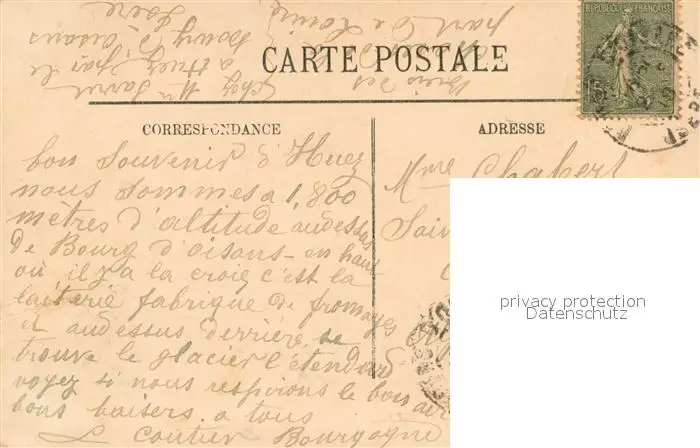 RÉPUBLIQUE FRANÇAISE
15
CARTE POSTALE
CORRESPONDANCE
ADRESSE
bon Souvenir d'Huez
nous sommes a 1,800
mètres d'altitude audessus
de Bourg d'oisans - en haut
où il y a la croix c'est la
laiterie fabrique de fromages
et audessus derrière se
trouve le glacier l'étendard
voyez si nous respirons le bon air
bons baisers a tous
Coutier Bourgogne
Mme Chabert
privacy protection
Datenschutz
chez Mr
a Huez par le
Bourg d'oisans
Isère